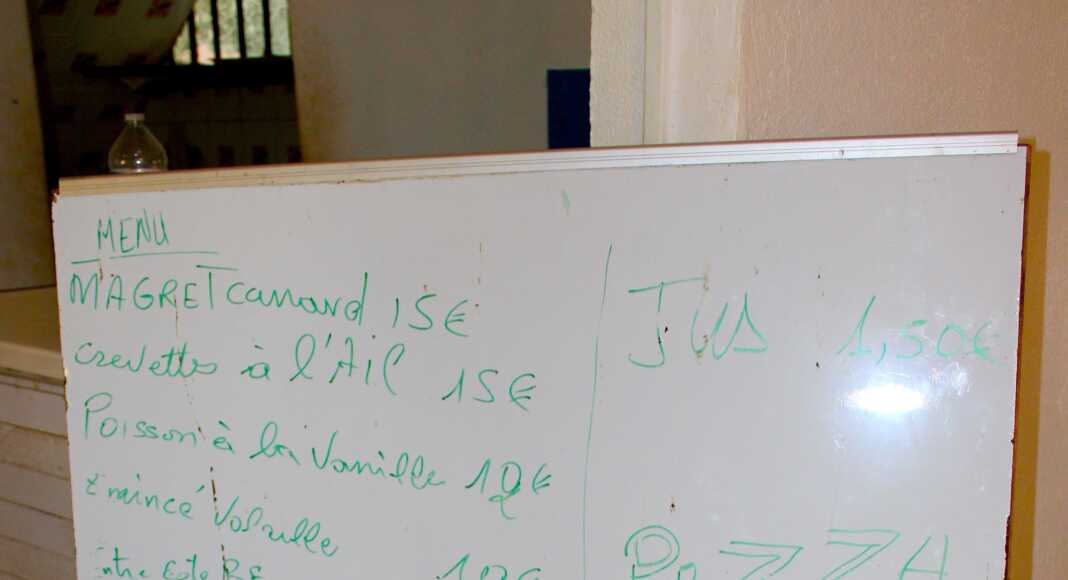 MENU
MAGRET canard 15€
crevettes à l'Ail 15€
Poisson à la Vanille 12€
Emincé Volaille
Entre Cote
JUS 1,50€
PIZZA